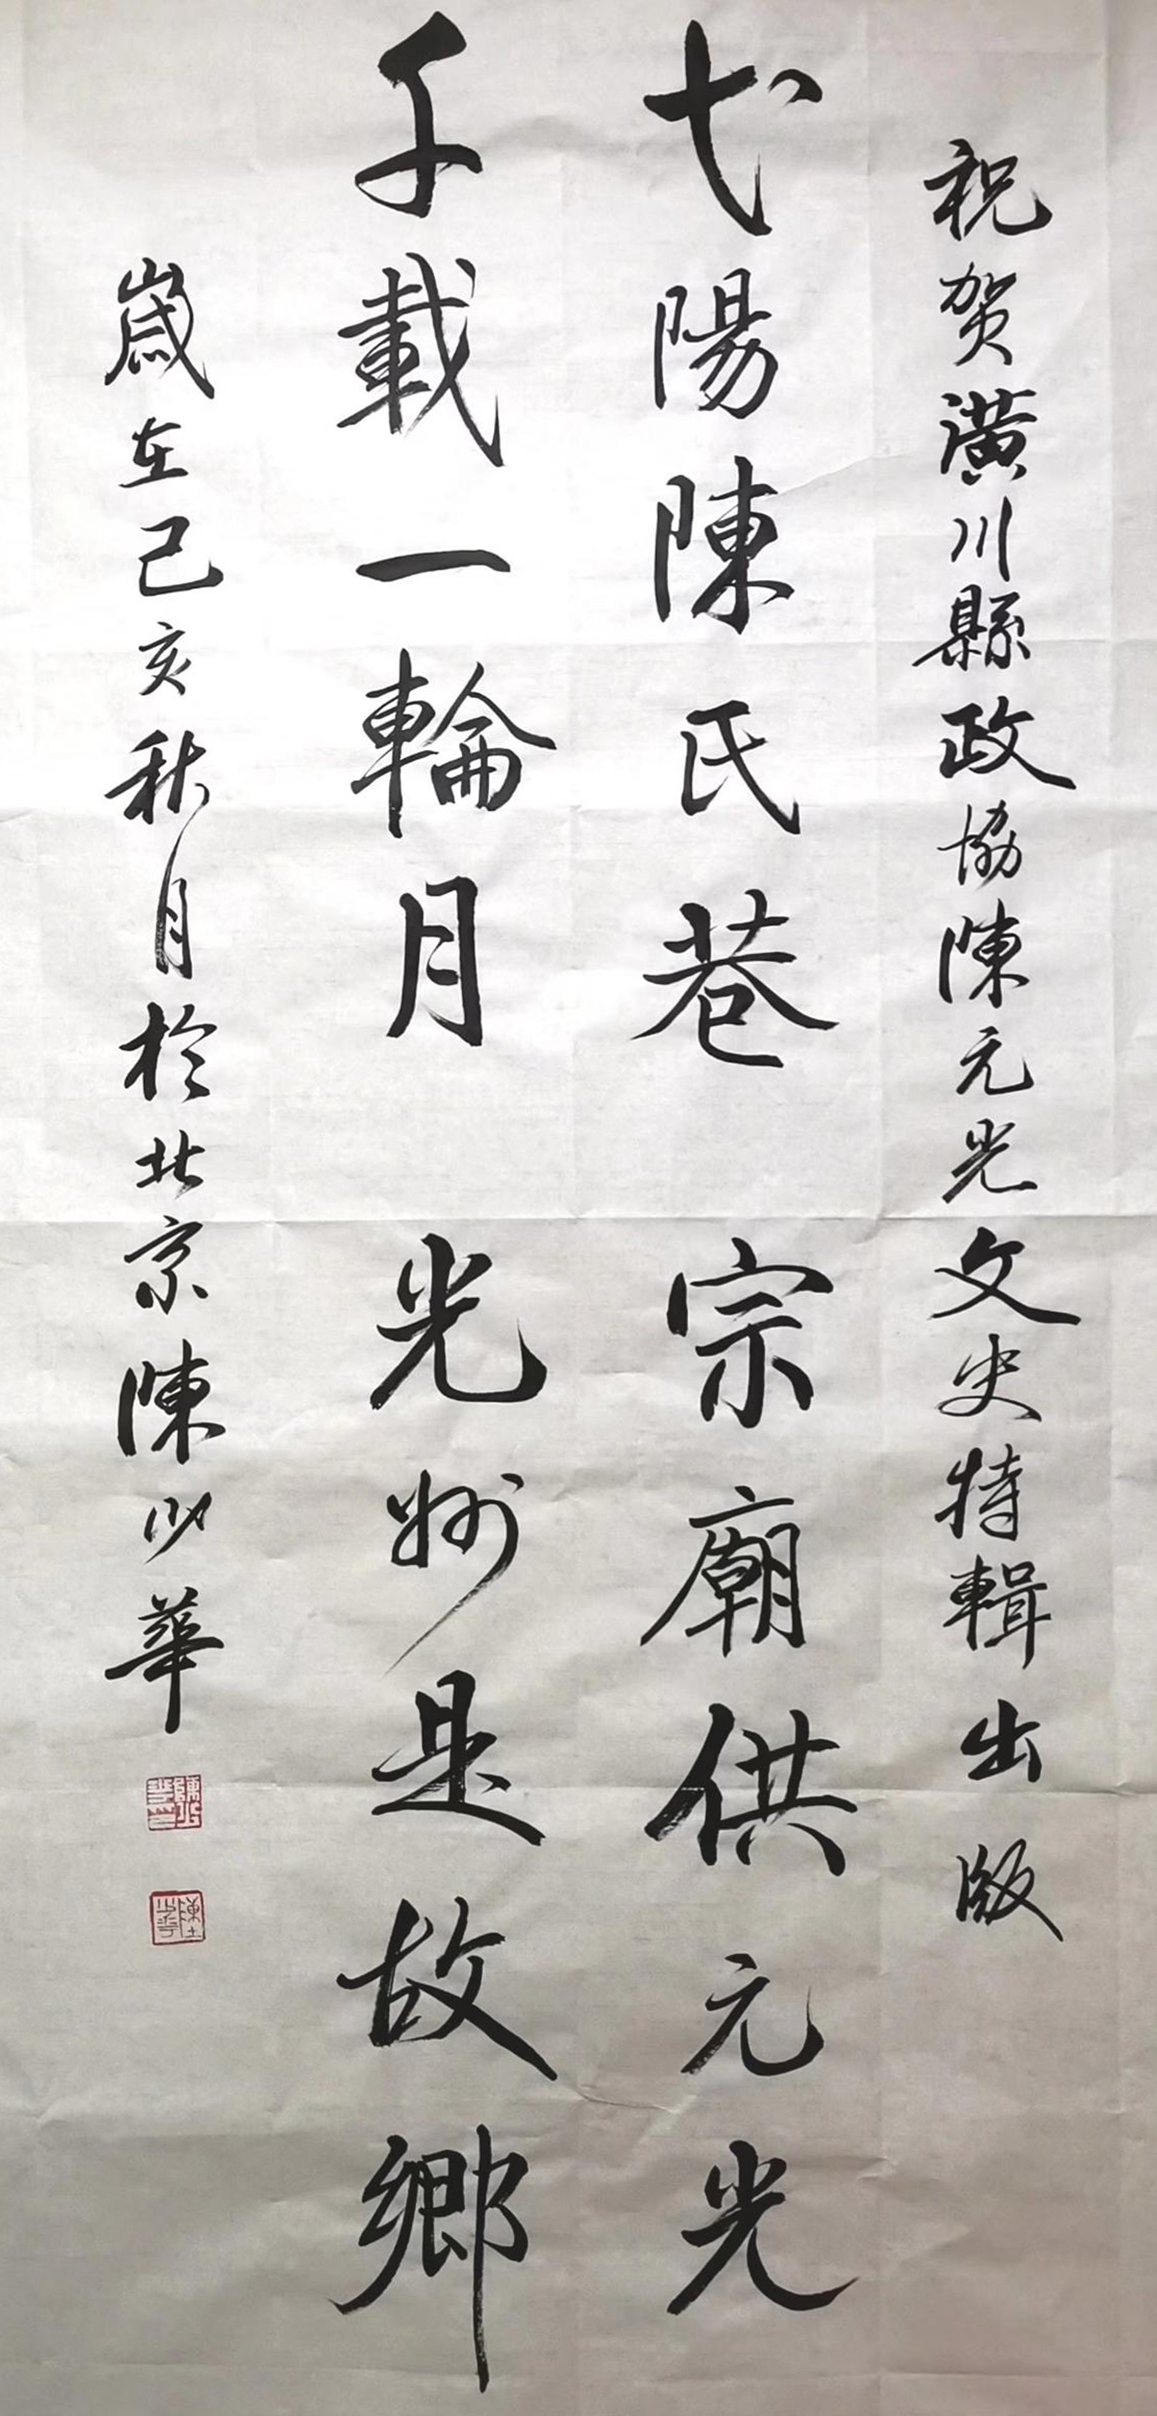 祝贺潢川縣政協陳元光文史特輯出版
弋陽陳氏巷 宗廟供元光
千載一輪月 光州是故鄉
歲在己亥秋月於北京陳少華